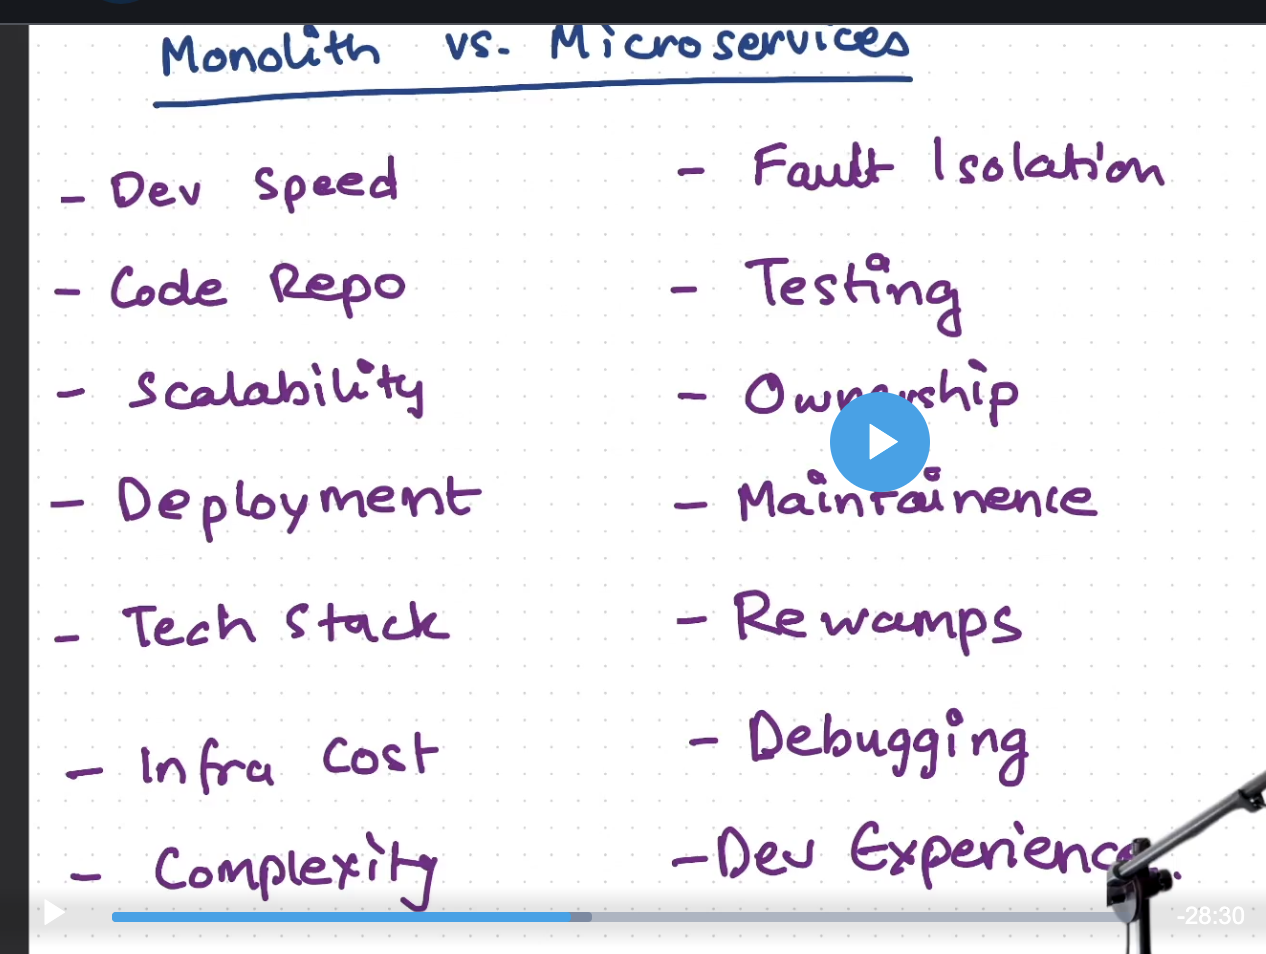 Monolith vs. Microservices
- Dev Speed
- Code Repo
- Scalability
- Deployment
- Tech Stack
- Infra Cost
- Complexity
- Fault Isolation
- Testing
- Ownership
- Maintainence
- Rewamps
- Debugging
- Dev Experience
-28:30